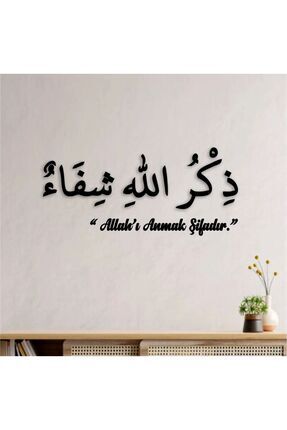 ذِكْرُ اللهِ شِفَاءٌ
“ Allah'ı Anmak Şifadır.”